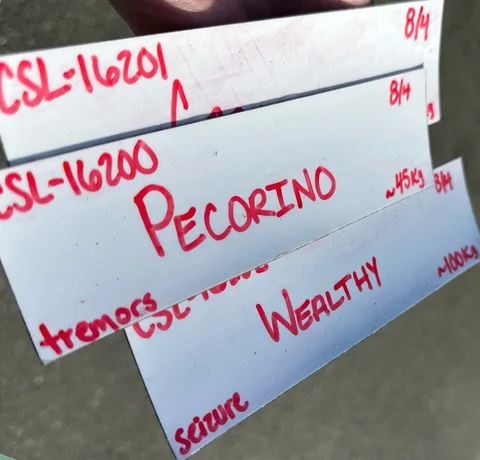 CSL-16201
8/4
CSL-16200
8/4
PECORINO
~45Kg
tremors
8/4
WEALTHY
~100Kg
seizure